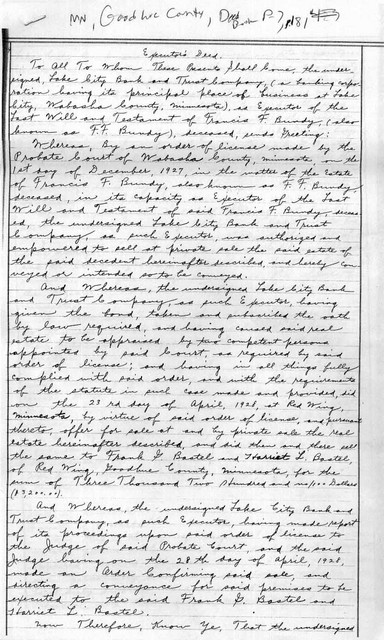 MN, Goodhue County, Deed Book P-7, p.181
Executor's Deed.
To All To Whom These Presents Shall Come, the under-
signed, Lake City Bank and Trust Company, (a banking corpo-
ration having its principal place of business at Lake
City, Wabasha County, Minnesota), as Executor of the
Last Will and Testament of Francis F. Bundy, (also
known as F.F. Bundy), deceased, sends Greeting:
Whereas, By an order of license made by the
Probate Court of Wabasha County, Minnesota, on the
1st day of December, 1927, in the matter of the Estate
of Francis F. Bundy, also known as F. F. Bundy,
deceased, in its capacity as Executor of the Last
Will and Testament of said Francis F. Bundy, deceas-
ed, the undersigned Lake City Bank and Trust
Company, as such Executor, was authorized and
empowered to sell at private sale the said estate of
the said decedent hereinafter described, and hereby con-
veyed or intended so to be conveyed.
And Whereas, the undersigned Lake City Bank
and Trust Company, as such Executor, having
given the bond, taken and subscribed the oath
by law required, and having caused said real
estate to be appraised by two competent persons
appointed by said Court, as required by said
order of license; and having in all things fully
complied with said order, and with the requirements
of the statute in such case made and provided, did
on the 23rd day of April, 1928, at Red Wing,
Minnesota, by virtue of said order of license, and pursuant
thereto, offer for sale at and by private sale the real
estate hereinafter described, and did then and there sell
the same to Frank G. Bastel and Harriet L. Bastel,
of Red Wing, Goodhue County, Minnesota, for the
sum of Three Thousand Two Hundred and no/100 Dollars
($3,200.00).
And Whereas, the undersigned Lake City Bank and
Trust Company, as such Executor, having made report
of its proceedings upon said order of license to
the Judge of said Probate Court, and the said
Judge having on the 28th day of April, 1928,
made an Order Confirming said sale, and
directing a conveyance for said premises to be
executed to the said Frank G. Bastel and
Harriet L. Bastel.
Now Therefore, Know Ye, That the undersigned